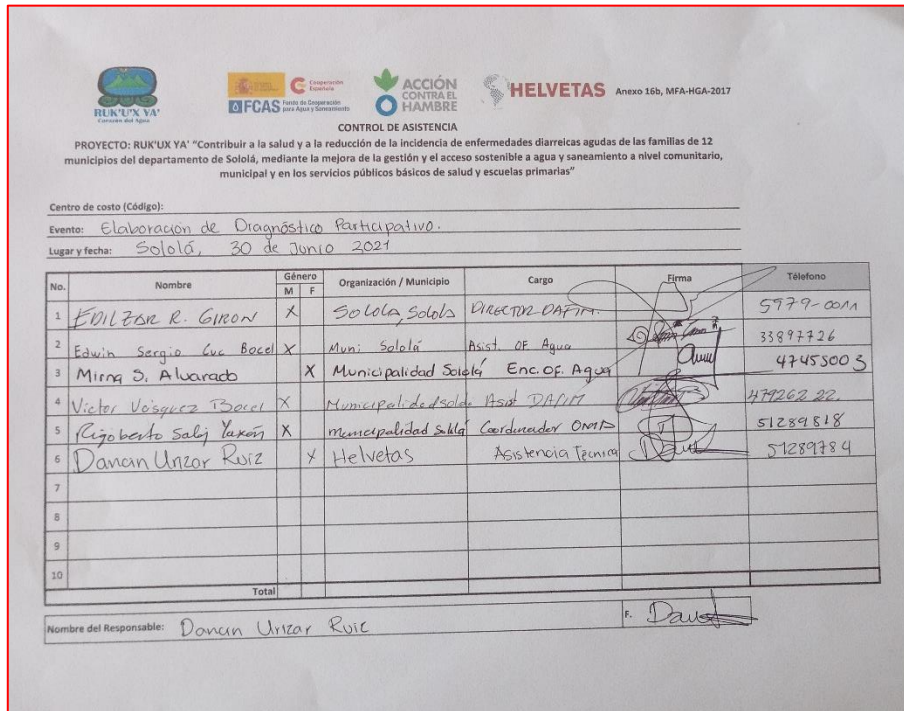 RUK'U'X YA'
Corazón del Agua
Cooperación Española
FCAS Fondo de Cooperación para Agua y Saneamiento
ACCIÓN CONTRA EL HAMBRE
HELVETAS Anexo 16b, MFA-HGA-2017
CONTROL DE ASISTENCIA
PROYECTO: RUK'UX YA' "Contribuir a la salud y a la reducción de la incidencia de enfermedades diarreicas agudas de las familias de 12
municipios del departamento de Sololá, mediante la mejora de la gestión y el acceso sostenible a agua y saneamiento a nivel comunitario,
municipal y en los servicios públicos básicos de salud y escuelas primarias"
Centro de costo (Código):
Evento: Elaboración de Diagnóstico Participativo.
Lugar y fecha: Sololá, 30 de Junio 2021
No. Nombre Género M F Organización / Municipio Cargo Firma Télefono
1 EDILZAR R. GIRON X Sololá, Sololá DIRECTOR DAFIM. 5979-0011
2 Edwin Sergio Cuc Bocel X Muni Sololá Asist. OF Agua 33897726
3 Mirna S. Alvarado X Municipalidad Sololá Enc. Of. Agua 47455003
4 Victor Vásquez Bocel X Municipalidad Asist DAFIM 47926222.
5 Rigoberto Saloj Yaxón X municipalidad Sololá Coordinador 51289818
6 Danan Urizar Ruiz X Helvetas Asistencia Técnica 51289784
7
8
9
10
Total
Nombre del Responsable: Danan Urizar Ruiz F.